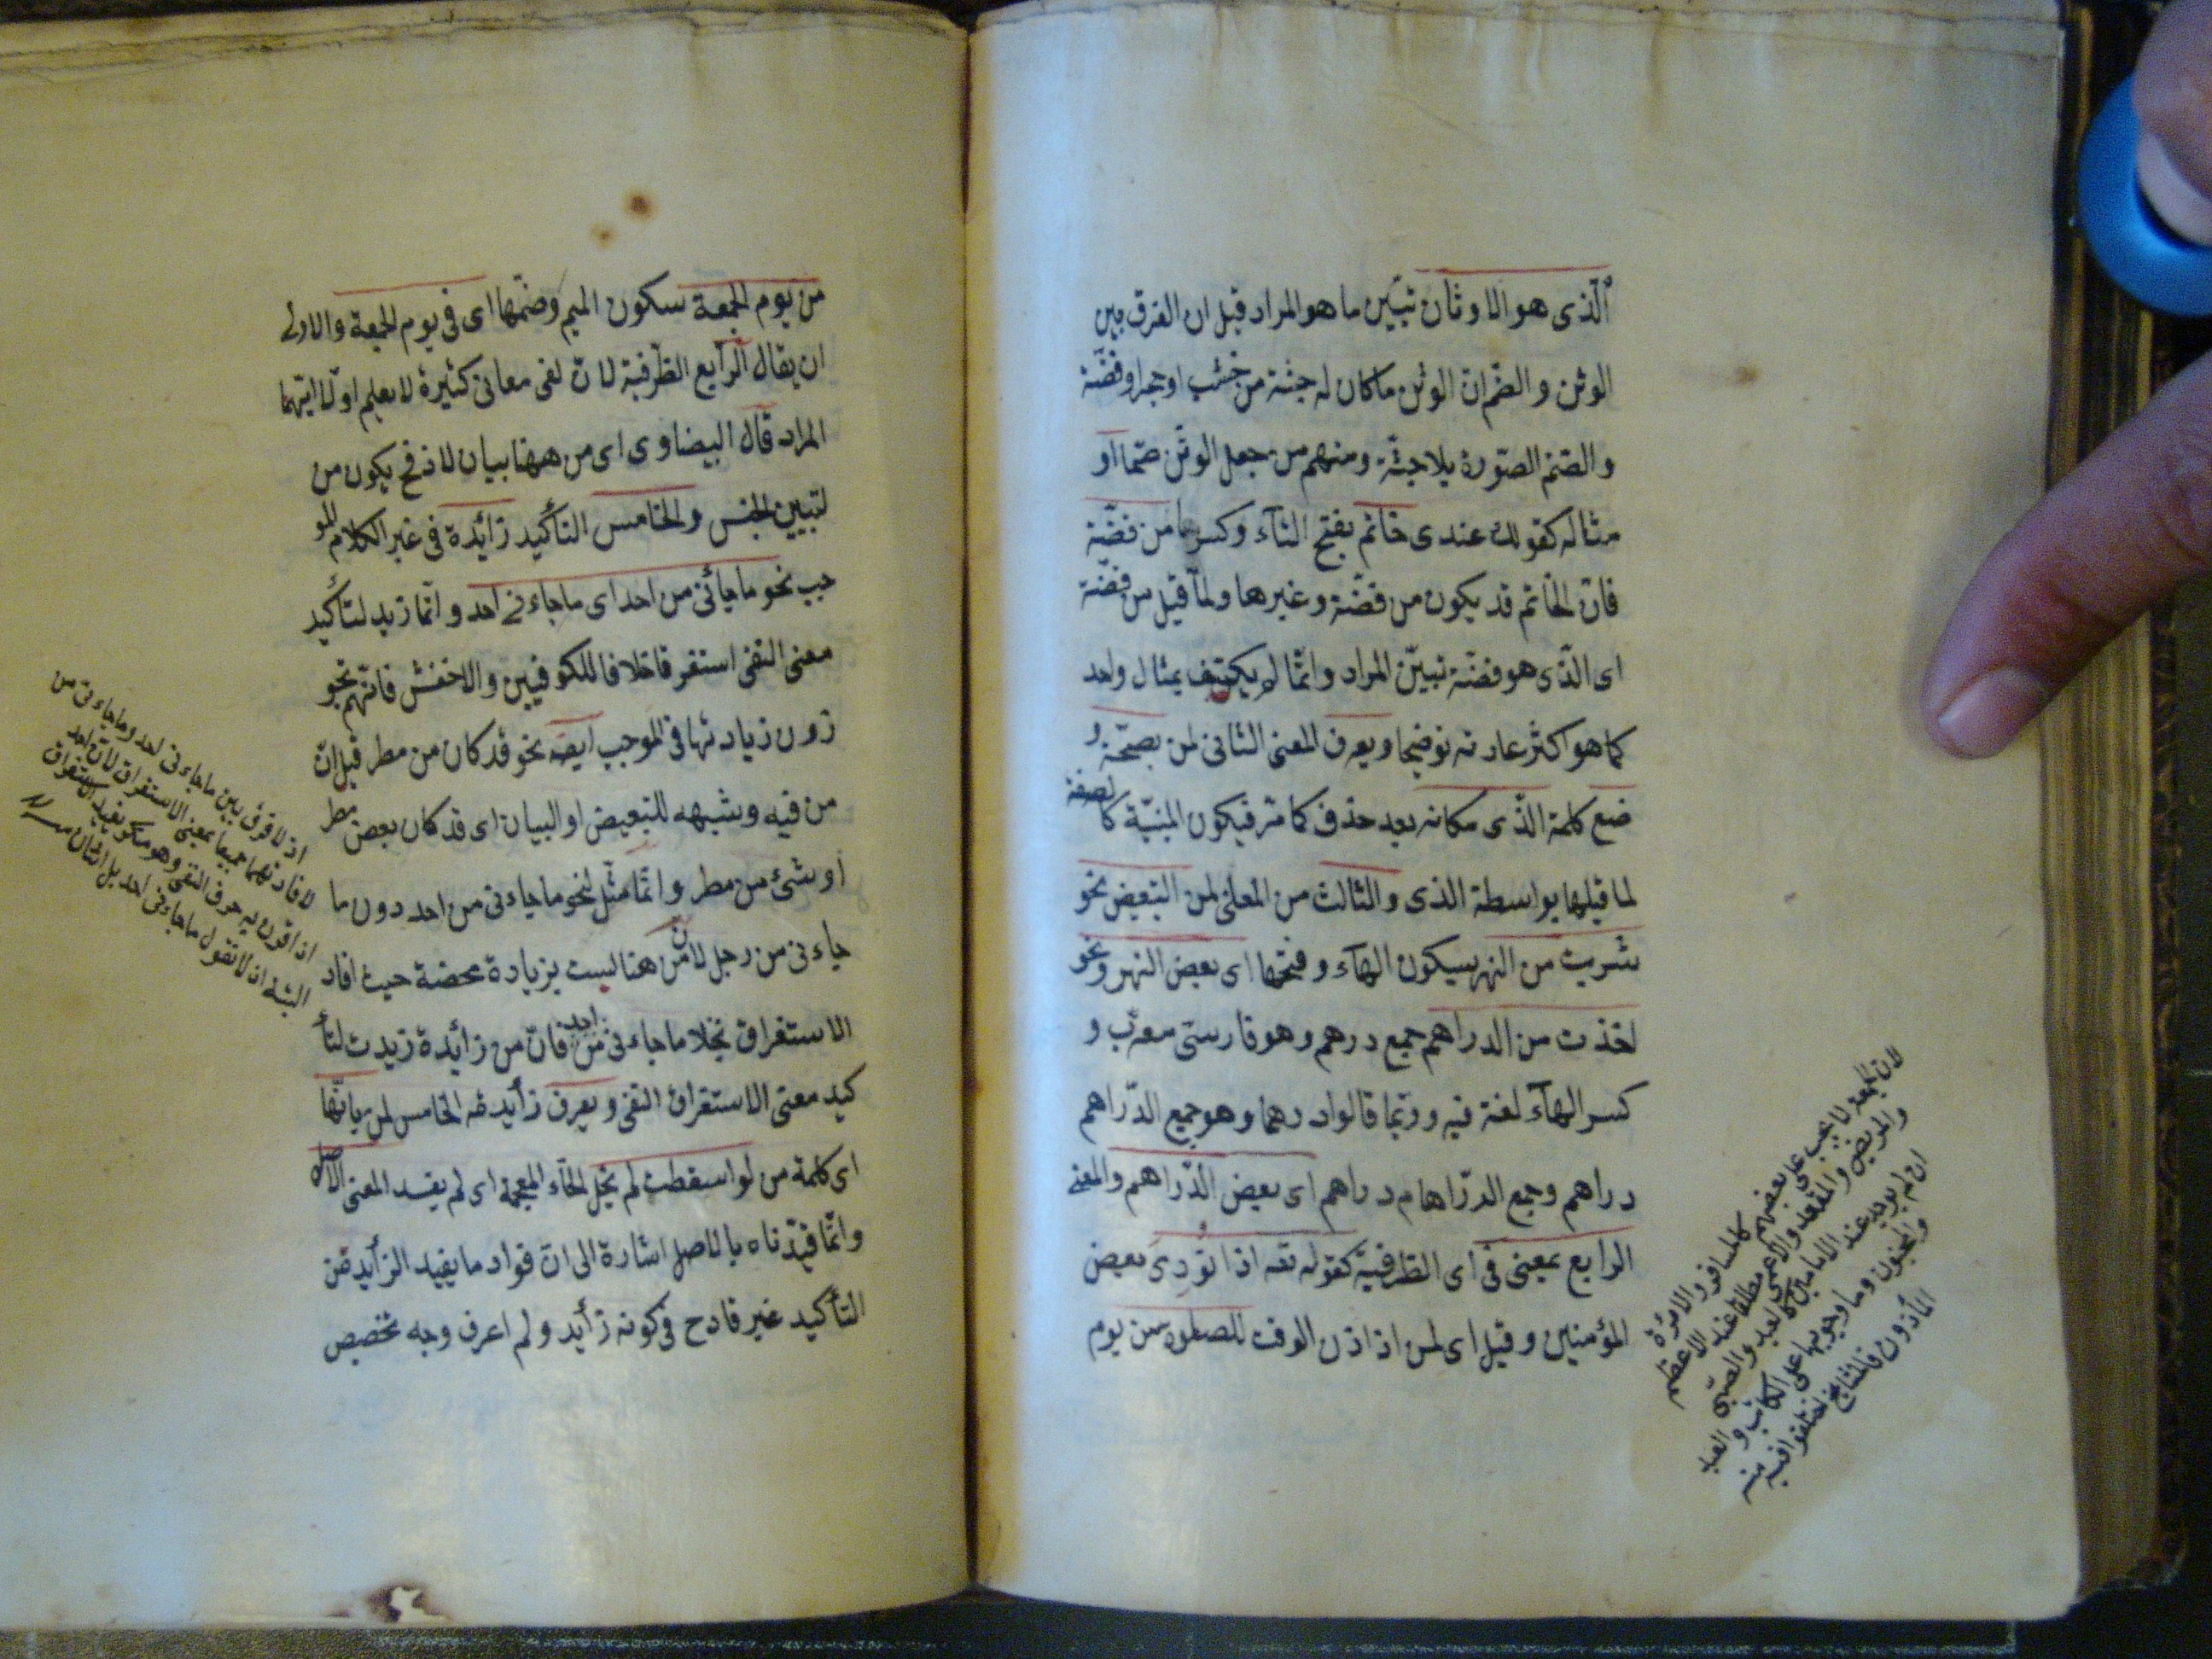 الّذى هو الاوثان تبيّن ما هو المراد قيل ان الفرق بين
الوثن و الصّنم ان الوثن ما كان له جثة من خشب او حجر او فضّة
و الصّنم الصّورة بلا جثّة ومنهم من جعل الوثن صنما او
مثاله كقولك عندى خاتم بفتح التاء وكسرها من فضّة
فانّ الخاتم قد يكون من فضّة وغيرها ولمّا قيل من فضّة
اى الّذى هو فضّة تبيّن المراد وانّما لم يكتف بمثال واحد
كما هو اكثر عادته توضيحا ويعرف المعنى الثانى لمن بصحّة و
ضع كلمة الّذى مكانه بعد حذف كما مرّ فيكون المبنيّة كالصفة
لما قبلها بواسطة الذى والثالث من المعانى لمن التبعيض نحو
شربت من النهر بسكون الهآء وفتحها اى بعض النهر ونحو
اخذت من الدراهم جمع درهم وهو فارسىّ معرّب و
كسر الهآء لغة فيه وربّما قالوا درهما وهو جمع الدّراهم
دراهم وجمع الدرّاهام دراهم اى بعض الدّراهم والمعنى
الرابع بمعنى فى اى الظرفيّة كقوله تعه اذا نودى بعض
المؤمنين وقيل اى لمن اذا اذن الوقت للصلوة من يوم
لان الجمعة لا يجب على بعضهم كالمسافر والامرأة
والمريض والمقعد والاعمى مطلقا عند الاعظم
ان لم يوجد عند الامامين كالعبد والصبىّ
والمجنون وما وجوبها على الكاتب و العبد
المأذون فالمشايخ اختلفوا فيه منه
من يوم الجمعة سكون الميم وضمّها اى فى يوم الجمعة والاولى
ان يقال الرابع الظّرفية لانّ لفى معانى كثيرة لا يعلم اوّلا ايّتها
المراد قال البيضاوى اى من ههنا بيان لاذ فح يكون من
لتبيين الجنس والخامس التأكيد زائدة فى غير الكلام المو
جب نحو ما جائنى من احد اى ما جاءنى احد وانّما زيد لتأكيد
معنى النفى استقرقا خلافا للكوفيين والاخفش فانّهم يجو
زون زيادتها فى الموجب ايضه نحو قد كان من مطر قيل انّ
من فيه وشبهه للتبعيض او البيان اى قد كان بعض مطر
او شئ من مطر وانّما مثّل لنحو ما جاءنى من احد دون ما
جاءنى من رجل لانّ من هنا ليست بزيادة محضة حيث افاد
الاستغراق بخلا ما جاءنى من احد فانّ من زائدة زيدت لتأ
كيد معنى الاستغراق النفى ويعرف زأيدته الخامس لمن بانّها
اى كلمة من لو اسقطت لم يخل الخآء المعجمة اى لم يفسد المعنى الاصل
وانّما قيدّناه بالاصل اشارة الى انّ فواد ما يفيد الزأيد من
التأكيد غير قادح فى كونه زأيد ولم اعرف وجه تخصيص
اذ لا فرق بين ما جاءنى احد وما جاءنى من
لافادتهما جميعا بمعنى الاستغراق لانّ احد
اذا قرن به حرف النفى وهو منكّر يفيد الاستغراق